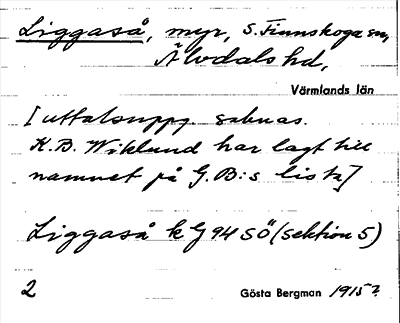 Liggaså, myr, S. Finnskoga sn,
Älvdals hd,
Värmlands län
[uttalsuppg. saknas.
K.B. Wiklund har lagt till
namnet på G.B:s lista]
Liggaså k G 94 SÖ (sektion 5)
2 Gösta Bergman 1915?